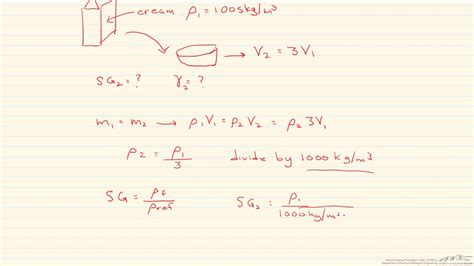 cream. ρ₁ = 1005 kg/m³
V₂ = 3V₁
SG₂ = ? γ₂ = ?
m₁ = m₂ → ρ₁V₁ = ρ₂V₂ = ρ₂ 3V₁
ρ₂ = ρ₁/3 divide by 1000 kg/m³
SG = ρf/ρref SG₂ = ρ₁/1000 kg/m³